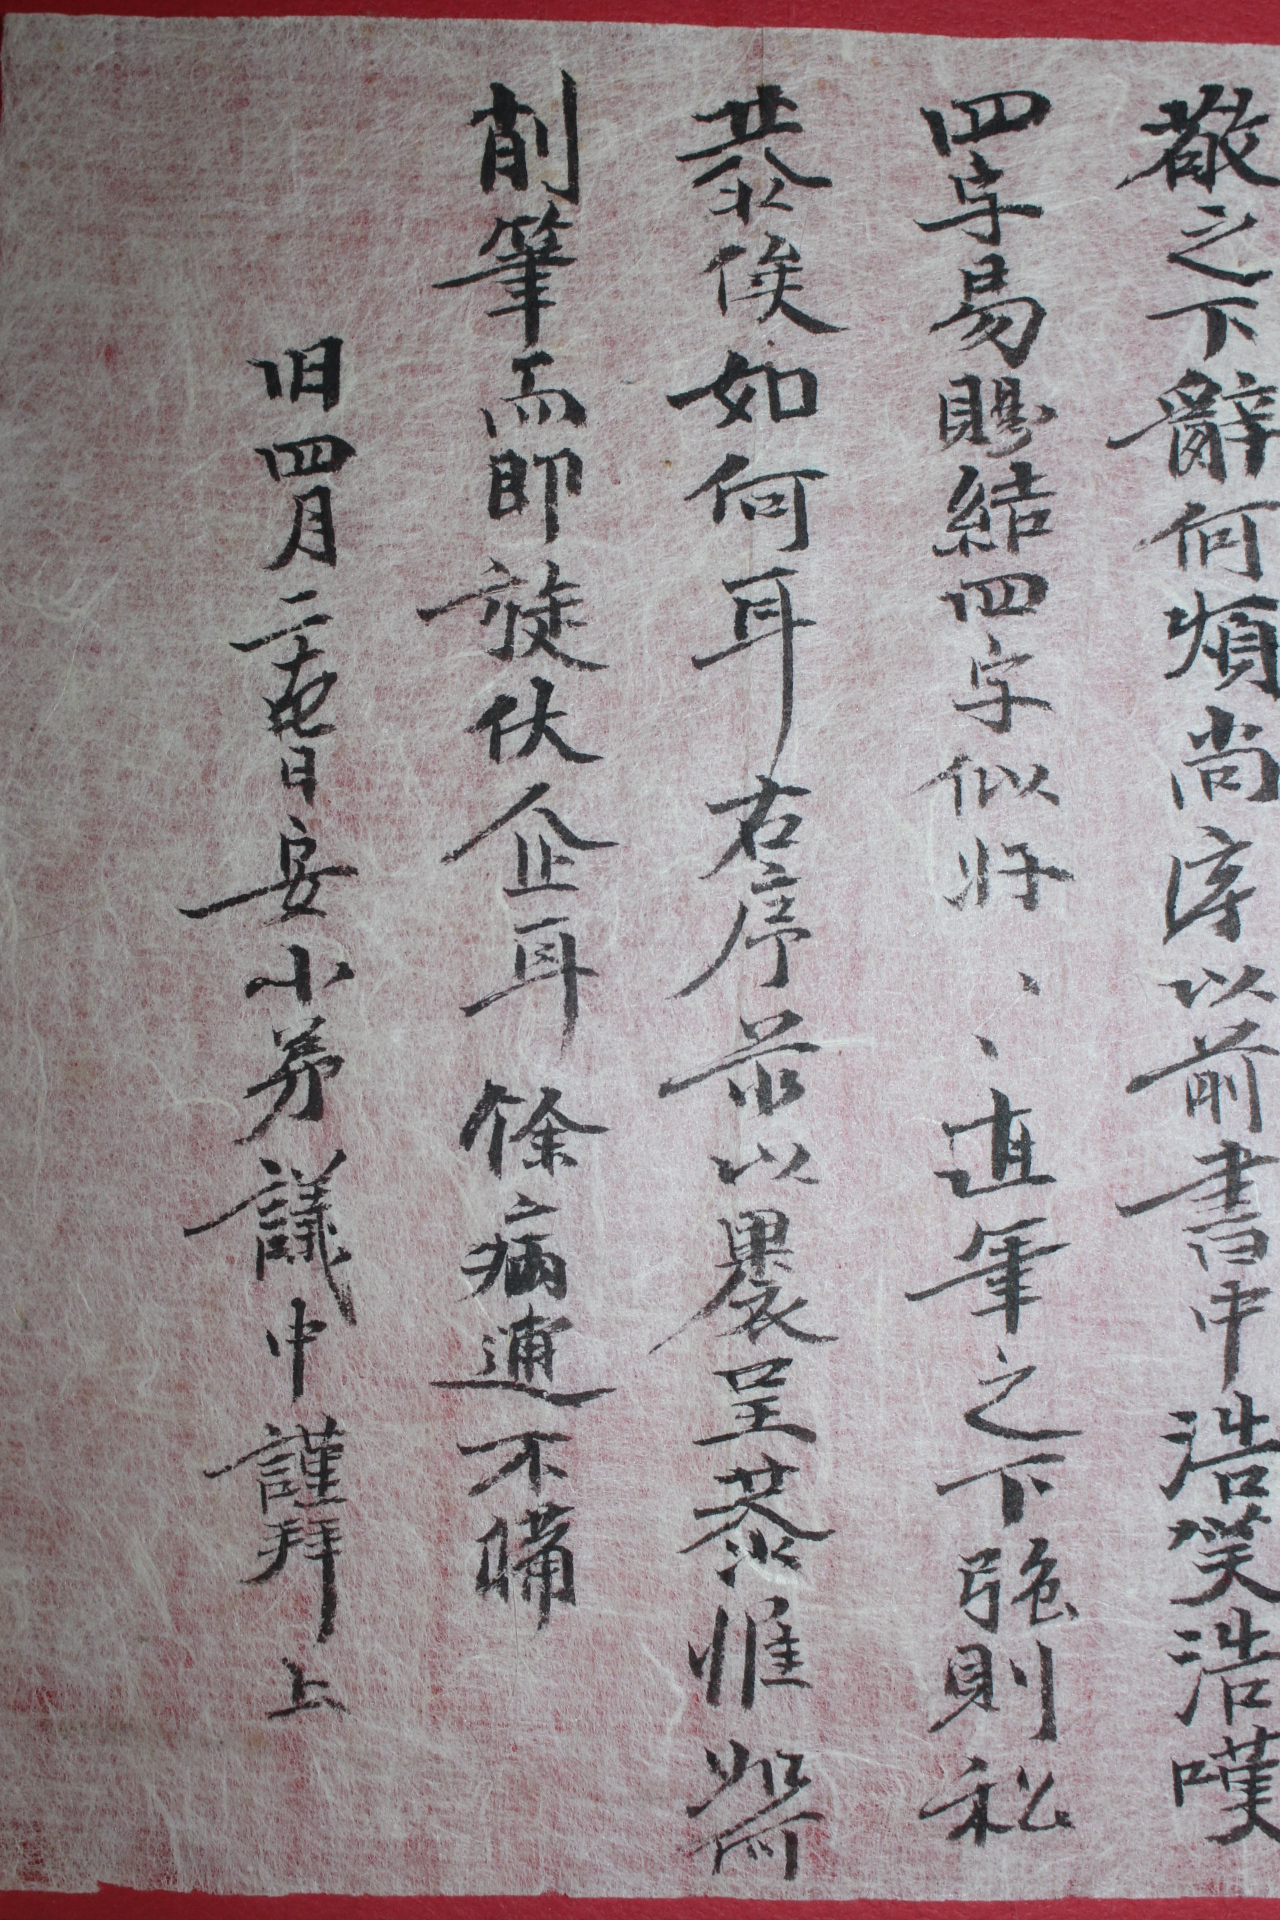 敬之下辭何煩尚序以前書中浩笑浩嘆
四字易賜結四字似好、、直筆之下強則私
恭俟如何耳右序並以裹呈恭惟
削筆而即旋伏企耳餘病逋不備
旧四月二十七日安小弟議中謹拜上